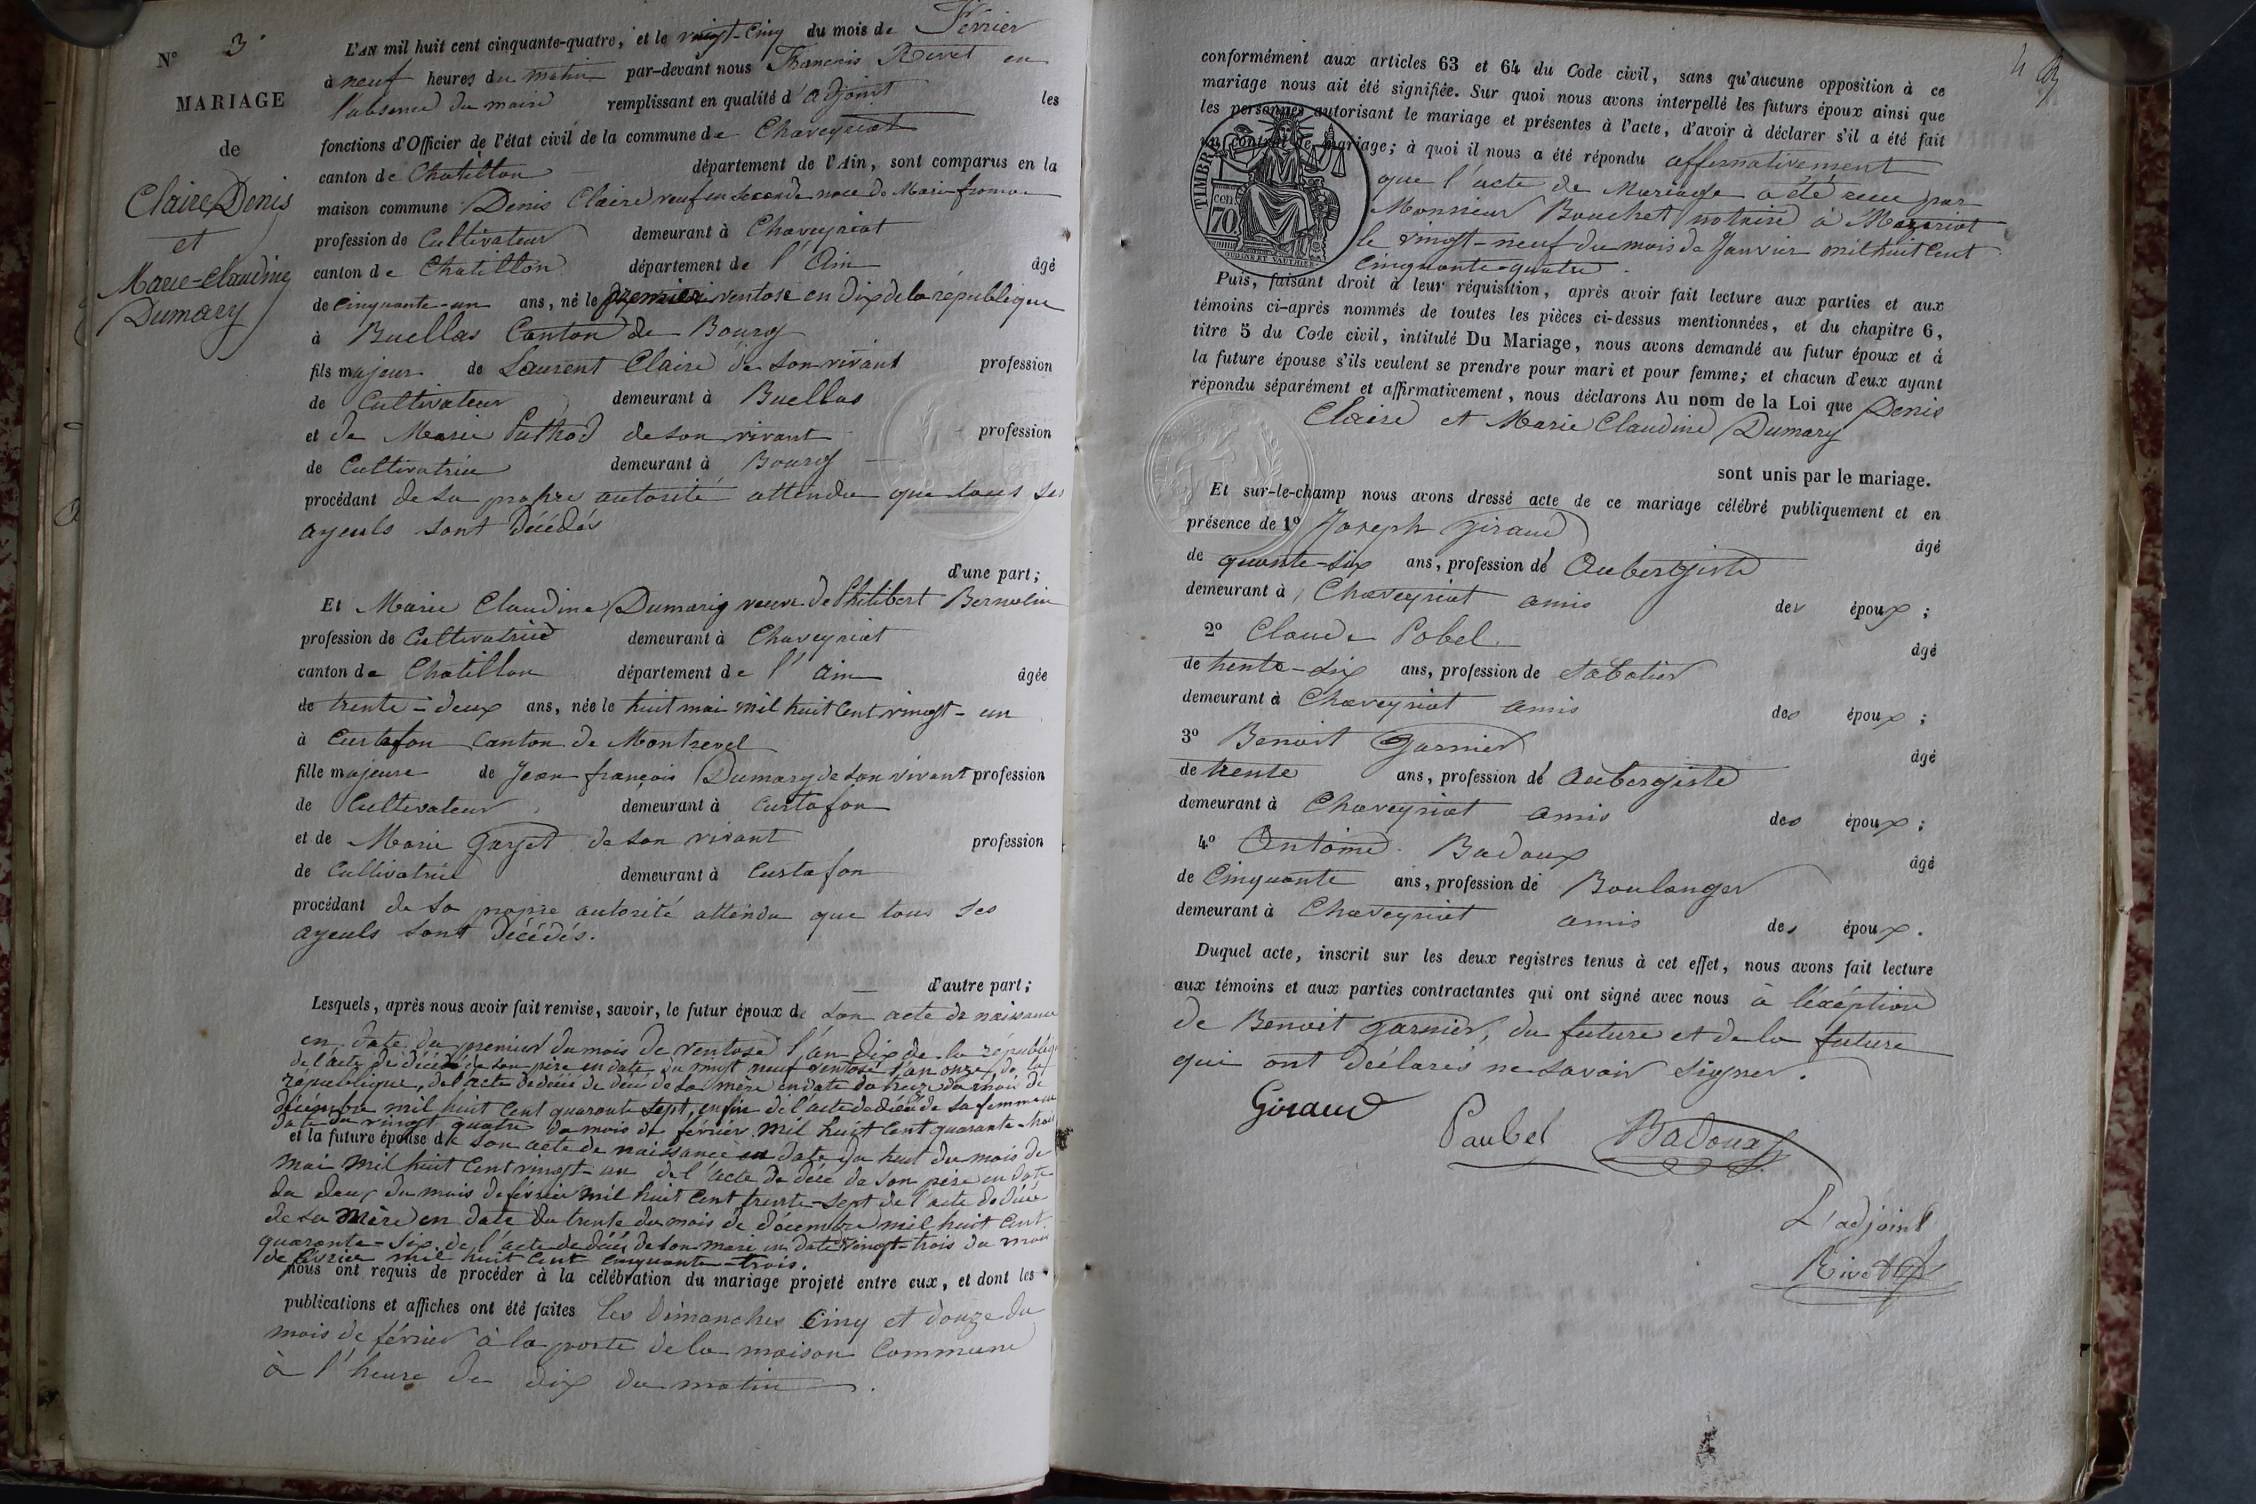 N° 3
MARIAGE
de
Claire Denis
et
Marie-Claudine
Dumary
L'AN mil huit cent cinquante-quatre, et le vingt-cinq du mois de Février
à neuf heures du matin par-devant nous François Rivet en
l'absence du maire remplissant en qualité d'adjoint les
fonctions d'Officier de l'état civil de la commune de Chaveyriat
canton de Chatillon département de l'Ain, sont comparus en la
maison commune Denis Claire veuf en seconde noce de Marie
profession de Cultivateur demeurant à Chaveyriat
canton de Chatillon département de l'Ain âgé
de cinquante-un ans, né le premier ventose en dix de la république
à Buellas Canton de Bourg
fils majeur de Laurent Claire de son vivant profession
de Cultivateur demeurant à Buellas
et de Marie Puthod de son vivant profession
de Cultivatrice demeurant à Bourg
procédant de sa propre autorité attendu que tous ses
ayeuls sont décédés
d'une part;
Et Marie Claudine Dumarig veuve de Philibert Bernolin
profession de Cultivatrice demeurant à Chaveyriat
canton de Chatillon département de l'Ain âgée
de trente-deux ans, née le huit mai mil huit cent vingt-un
à Curtafon canton de Montrevel
fille majeure de Jean françois Dumary de son vivant profession
de Cultivateur demeurant à Curtafon
et de Marie Garjet de son vivant profession
de Cultivatrice demeurant à Curtafon
procédant de sa propre autorité attendu que tous ses
ayeuls sont décédés.
d'autre part;
Lesquels, après nous avoir fait remise, savoir, le futur époux de son acte de naissance
en date du premier du mois de ventose l'an dix de la républiq
de l'acte de décédé de son père en date du vingt neuf ventose l'an onze de la
république, de l'acte de décé de sa mère en date du treize du mois de
décembre mil huit cent quarante sept, enfin de l'acte de décé de sa femme en
date du vingt quatre du mois de février mil huit cent quarante-trois
et la future épouse de son acte de naissance en date du huit du mois de
mai mil huit cent vingt-un de l'acte de décé de son père en date
du deux du mois de février mil huit cent trente-sept de l'acte de décé
de sa mère en date du trente du mois de décembre mil huit cent
quarante-six. de l'acte de décés de son mari en date vingt-trois du mois
de février mil huit cent cinquante-trois.
nous ont requis de procéder à la célébration du mariage projeté entre eux, et dont les
publications et affiches ont été faites les dimanches cinq et douze du
mois de février à la porte de la maison commune
à l'heure de dix du matin.
conformément aux articles 63 et 64 du Code civil, sans qu'aucune opposition à ce
mariage nous ait été signifiée. Sur quoi nous avons interpellé les futurs époux ainsi que
les personnes autorisant le mariage et présentes à l'acte, d'avoir à déclarer s'il a été fait
un contrat de mariage; à quoi il nous a été répondu affirmativement
que l'acte de Mariage a été reçu par
Monsieur Bouchet notaire à Mezeriat
le vingt-neuf du mois de Janvier mil huit cent
cinquante-quatre.
TIMBRE
cen
70
OUDINÉ ET VAUTHIER
Puis, faisant droit à leur réquisition, après avoir fait lecture aux parties et aux
témoins ci-après nommés de toutes les pièces ci-dessus mentionnées, et du chapitre 6,
titre 5 du Code civil, intitulé Du Mariage, nous avons demandé au futur époux et à
la future épouse s'ils veulent se prendre pour mari et pour femme; et chacun d'eux ayant
répondu séparément et affirmativement, nous déclarons Au nom de la Loi que Denis
Claire et Marie Claudine Dumary
sont unis par le mariage.
Et sur-le-champ nous avons dressé acte de ce mariage célébré publiquement et en
présence de 1° Joseph Giraud âgé
de quarante-six ans, profession de Aubergiste
demeurant à Chaveyriat amis des époux;
2° Claude Pobel âgé
de trente-six ans, profession de Sabotier
demeurant à Chaveyriat amis des époux;
3° Benoit Garnier âgé
de trente ans, profession de Aubergiste
demeurant à Chaveyriat amis des époux;
4° Antoine Badoux âgé
de Cinquante ans, profession de Boulanger
demeurant à Chaveyriat amis des époux.
Duquel acte, inscrit sur les deux registres tenus à cet effet, nous avons fait lecture
aux témoins et aux parties contractantes qui ont signé avec nous à l'éxéption
de Benoit Garnier, du future et de la future
qui ont déclarés ne savoir signer.
Giraud
Paubel Badoux
L'adjoint
Rivet